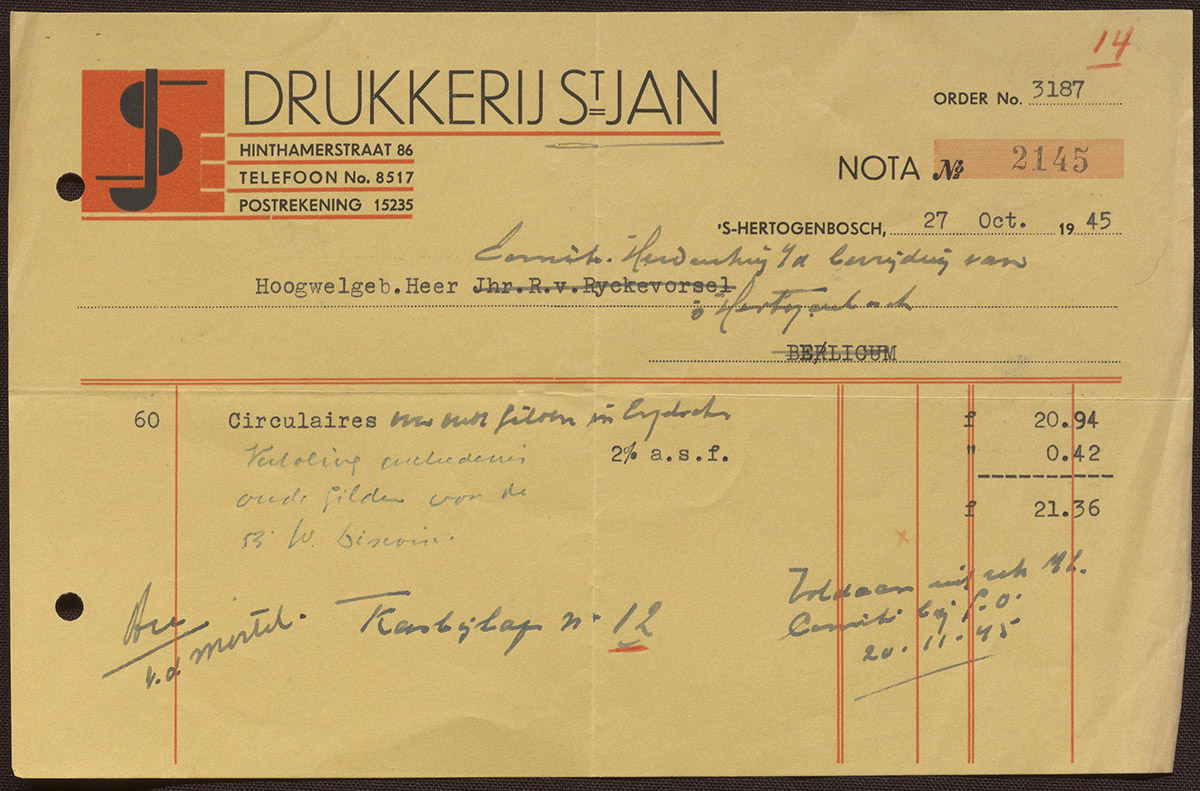 14
DRUKKERIJ ST JAN
ORDER No. 3187
HINTHAMERSTRAAT 86
TELEFOON No. 8517
POSTREKENING 15235
NOTA No 2145
'S-HERTOGENBOSCH, 27 Oct. 1945
Comité Herdenking v/d bevrijding van
Hoogwelgeb.Heer Jhr.R.v.Ryckevorsel
's Hertogenbosch
BERLICUM
60 Circulaires oude Gilden in f 20.94
2% a.s.f. " 0.42
oude Gilden voor de
f 21.36
Voldaan uit
Comité bij P.O.
20-11-45
v.d. Mortel. Kasbijlage no 12